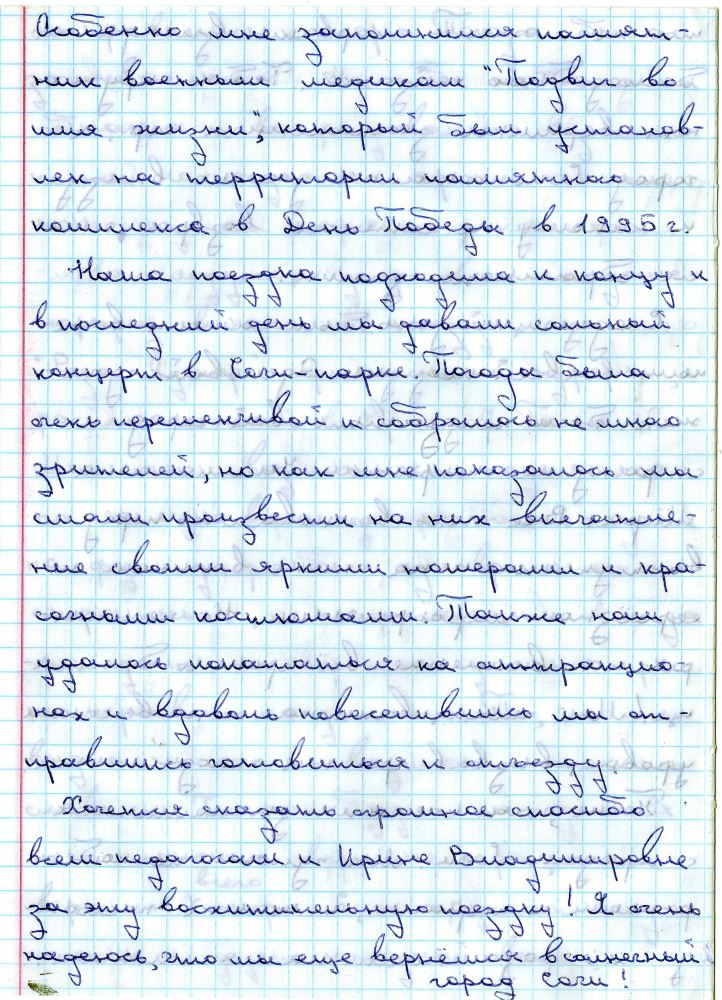 Особенно мне запомнился памят-
ник военным медикам "Подвиг во
имя жизни", который был установ-
лен на территории памятного
комплекса в День Победы в 1995 г.
Наша поездка подходила к концу и
в последний день мы давали сольный
концерт в Сочи-парке. Погода была
очень переменчивой и собралось не много
зрителей, но как мне показалось мы
смогли произвести на них впечатле-
ние своими яркими номерами и кра-
сочными костюмами. Также нам
удалось покататься на аттракцио-
нах и вдоволь повеселившись мы от-
правились готовиться к отъезду.
Хочется сказать огромное спасибо
всем педагогам и Ирине Владимировне
за эту восхитительную поездку! Я очень
надеюсь, что мы еще вернёмся в солнечный
город Сочи!